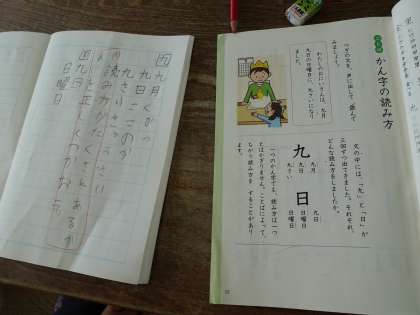 かん字の読み方
つぎの文を、声に出して、読んで
みましょう。
わたしのおにいさんは、九月
九日の日曜日に、九さいになり
ました。
文の中には、「九」と「日」が
三回ずつ出てきました。それぞれ、
どんな読み方をしましたか。
九
九月
九日
九さい
日
九日
日曜日
日曜日
一つのかん字でも、読み方は一つ
とはかぎりません。ことばによって、
ちがう読み方を することがあり
ます。
九月くがつ
九日ここのか
九さい
読みかた
正しくつかおう
九日
日曜日